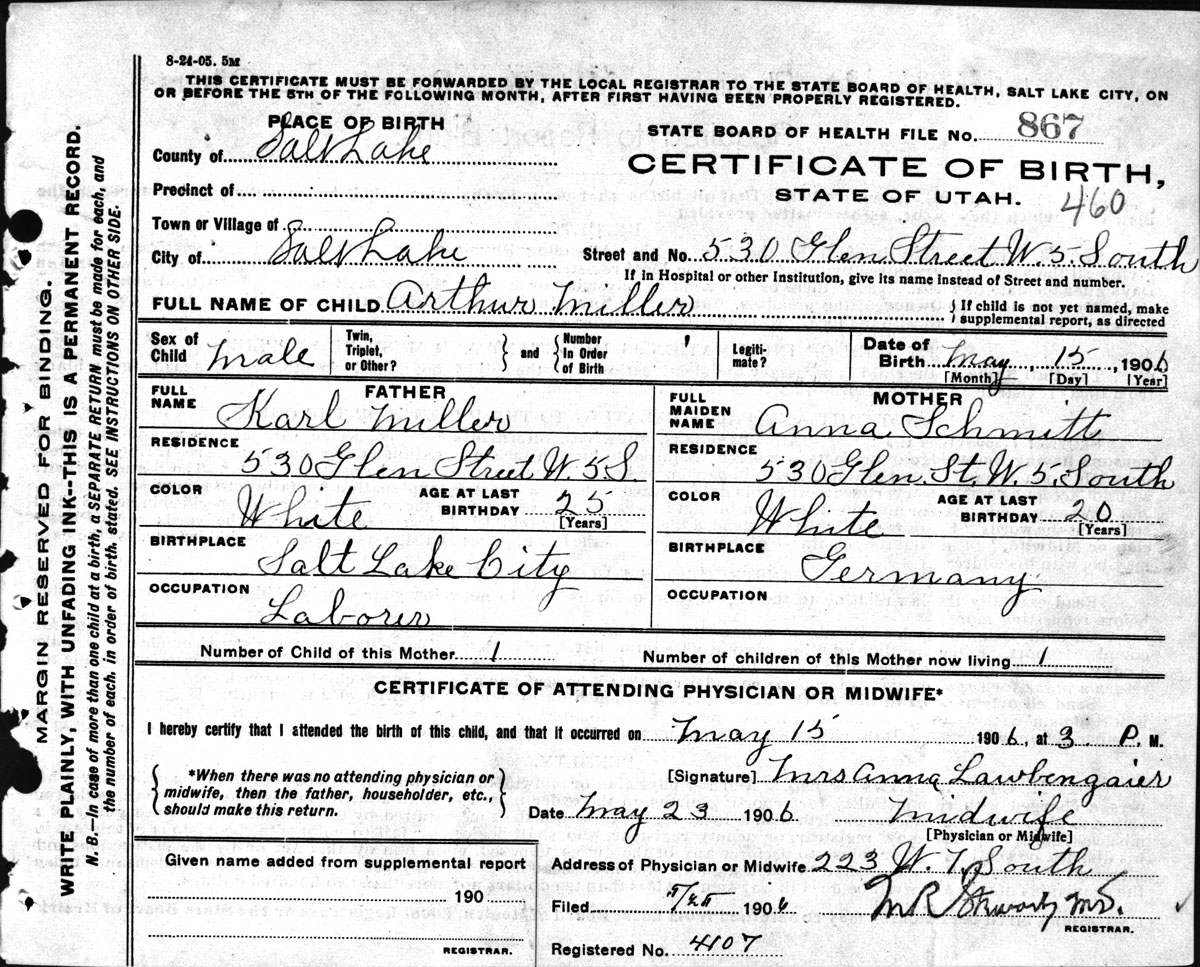 8-24-05. 5M
THIS CERTIFICATE MUST BE FORWARDED BY THE LOCAL REGISTRAR TO THE STATE BOARD OF HEALTH, SALT LAKE CITY, ON
OR BEFORE THE 5TH OF THE FOLLOWING MONTH, AFTER FIRST HAVING BEEN PROPERLY REGISTERED.
PLACE OF BIRTH
STATE BOARD OF HEALTH FILE NO. 867
County of Salt Lake
CERTIFICATE OF BIRTH,
Precinct of
STATE OF UTAH. 460
Town or Village of
City of Salt Lake
Street and No. 530 Glen Street W. 5. South
If in Hospital or other Institution, give its name instead of Street and number.
FULL NAME OF CHILD Arthur Miller
{ If child is not yet named, make
supplemental report, as directed
Sex of Child Male
Twin, Triplet, or Other? } and { Number In Order of Birth
Legiti-mate?
Date of Birth May 15, 1906
[Month] [Day] [Year]
FATHER
FULL NAME Karl Miller
RESIDENCE
530 Glen Street W. 5 S.
COLOR White AGE AT LAST BIRTHDAY 25
[Years]
BIRTHPLACE Salt Lake City
OCCUPATION Laborer
MOTHER
FULL MAIDEN NAME Anna Schmitt
RESIDENCE
530 Glen. St. W. 5. South
COLOR White AGE AT LAST BIRTHDAY 20
[Years]
BIRTHPLACE Germany
OCCUPATION
Number of Child of this Mother 1
Number of children of this Mother now living 1
CERTIFICATE OF ATTENDING PHYSICIAN OR MIDWIFE*
I hereby certify that I attended the birth of this child, and that it occurred on May 15 1906, at 3 P. M.
{ *When there was no attending physician or
midwife, then the father, householder, etc.,
should make this return. }
[Signature] Mrs Anna Lawbengaier
Date May 23 1906 Midwife
[Physician or Midwife]
Given name added from supplemental report
190
REGISTRAR.
Address of Physician or Midwife 223 W. 7. South
Filed 1906
M.D.
REGISTRAR.
Registered No. 4107
MARGIN RESERVED FOR BINDING.
WRITE PLAINLY, WITH UNFADING INK--THIS IS A PERMANENT RECORD.
N. B.—In case of more than one child at a birth, a SEPARATE RETURN must be made for each, and
the number of each, in order of birth, stated. SEE INSTRUCTIONS ON OTHER SIDE.